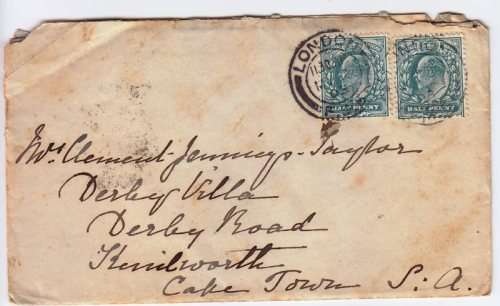 LONDON
HALF PENNY
HALF PENNY
Mrs Clement Jennings-Taylor
Derby Villa
Derby Road
Kenilworth
Cape Town S. A.